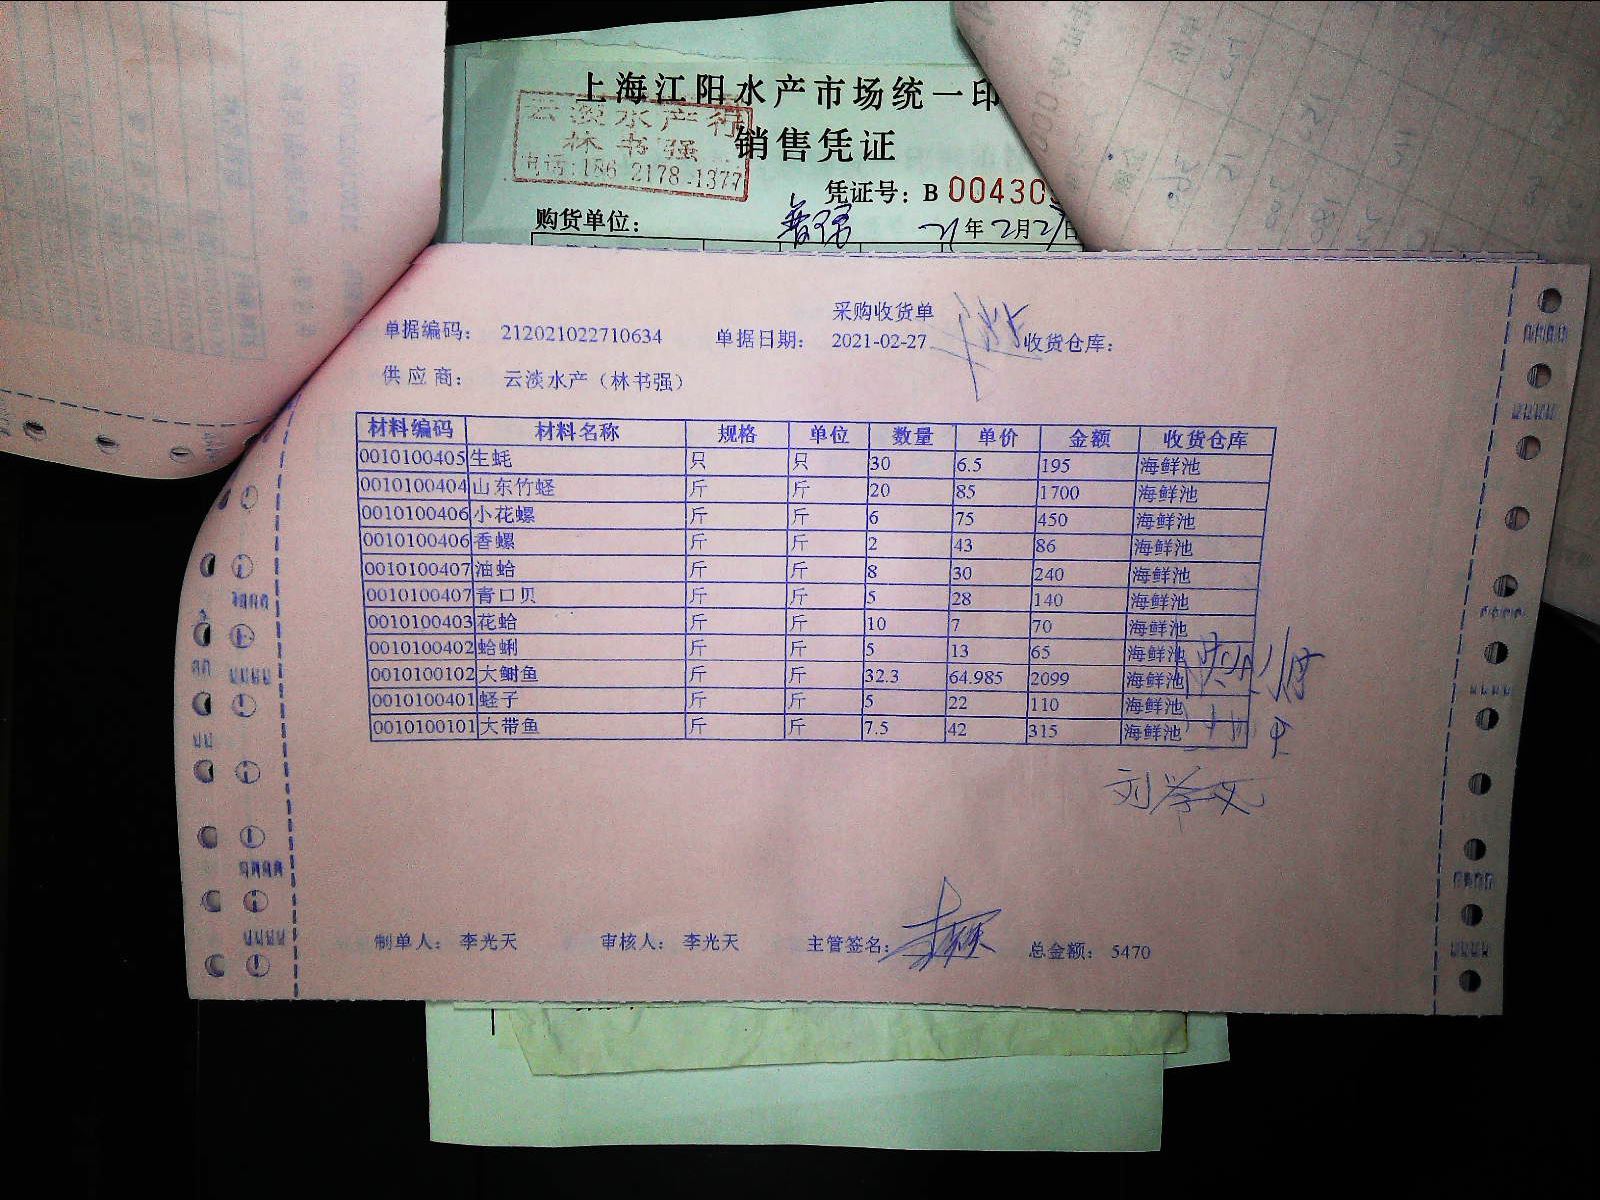 上海江阳水产市场统一印
销售凭证
云淡水产行
林书强
电话:186 2178-1377
凭证号: B 00430
购货单位: 21年2月27日
采购收货单
单据编码: 212021022710634 单据日期: 2021-02-27 收货仓库:
供应商: 云淡水产（林书强）
材料编码 材料名称 规格 单位 数量 单价 金额 收货仓库
0010100405 生蚝 只 只 30 6.5 195 海鲜池
0010100404 山东竹蛏 斤 斤 20 85 1700 海鲜池
0010100406 小花螺 斤 斤 6 75 450 海鲜池
0010100406 香螺 斤 斤 2 43 86 海鲜池
0010100407 油蛤 斤 斤 8 30 240 海鲜池
0010100407 青口贝 斤 斤 5 28 140 海鲜池
0010100403 花蛤 斤 斤 10 7 70 海鲜池
0010100402 蛤蜊 斤 斤 5 13 65 海鲜池
0010100102 大鲥鱼 斤 斤 32.3 64.985 2099 海鲜池
0010100401 蛏子 斤 斤 5 22 110 海鲜池
0010100101 大带鱼 斤 斤 7.5 42 315 海鲜池
刘学文
制单人: 李光天 审核人: 李光天 主管签名: 总金额: 5470